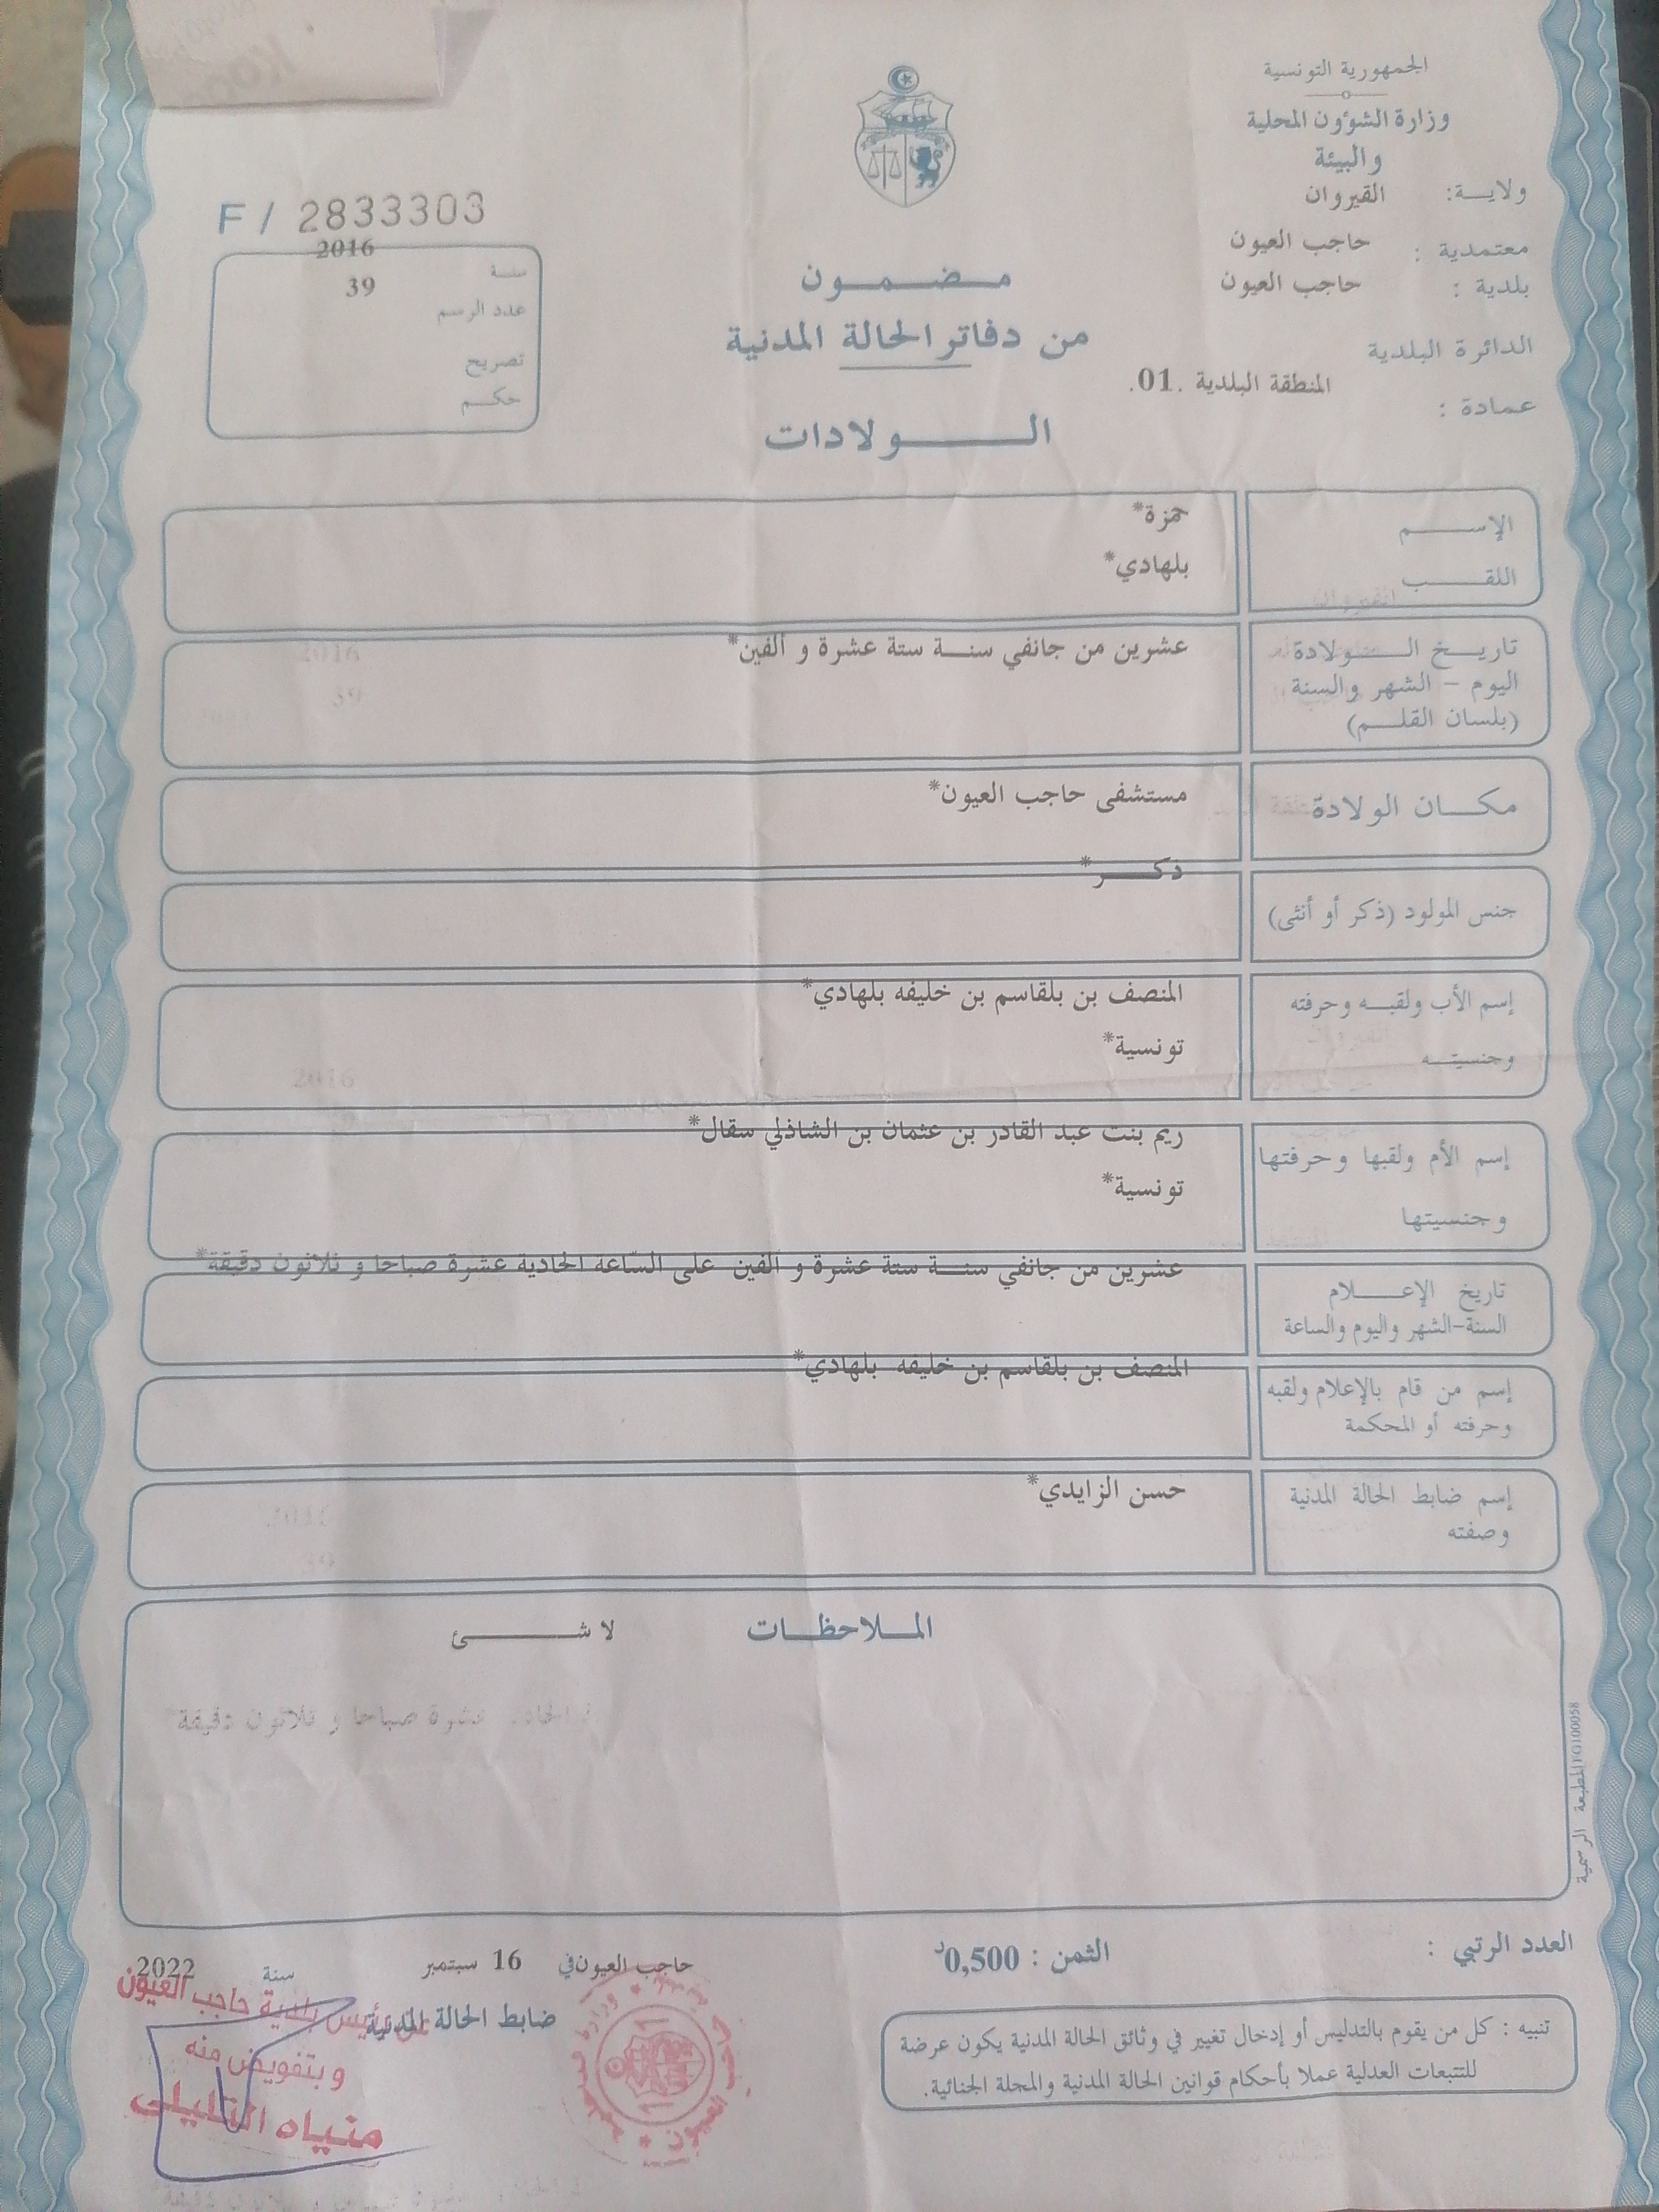 الجمهورية التونسية
وزارة الشؤون المحلية
والبيئة
ولايـــة: القيروان
معتمدية : حاجب العيون
بلدية : حاجب العيون
الدائرة البلدية
المنطقة البلدية .01.
عمادة :
F / 2833303
سنة 2016
عدد الرسم 39
تصريح
حكم
مضمون
من دفاتر الحالة المدنية
الولادات
الإسم حمزة*
اللقب بلهادي*
تاريخ الولادة عشرين من جانفي سنة ستة عشرة و ألفين*
اليوم – الشهر والسنة
(بلسان القلم)
مكان الولادة مستشفى حاجب العيون*
جنس المولود (ذكر أو أنثى) ذكر*
إسم الأب ولقبه وحرفته المنصف بن بلقاسم بن خليفه بلهادي*
وجنسيته تونسية*
إسم الأم ولقبها وحرفتها ريم بنت عبد القادر بن عثمان بن الشاذلي سقال*
وجنسيتها تونسية*
تاريخ الإعلام عشرين من جانفي سنة ستة عشرة و ألفين على الساعة الحادية عشرة صباحا و ثلاثون دقيقة*
السنة-الشهر واليوم والساعة
إسم من قام بالإعلام ولقبه المنصف بن بلقاسم بن خليفه بلهادي*
وحرفته أو المحكمة
إسم ضابط الحالة المدنية حسن الزايدي*
وصفته
الملاحظات لا شئ
المطبعة الرسمية
العدد الرتبي :
الثمن : 0,500د
حاجب العيون في 16 سبتمبر سنة 2022
ضابط الحالة المدنية
عن رئيس بلدية حاجب العيون
وبتفويض منه
تنبيه : كل من يقوم بالتدليس أو إدخال تغيير في وثائق الحالة المدنية يكون عرضة
للتتبعات العدلية عملا بأحكام قوانين الحالة المدنية والمجلة الجنائية.